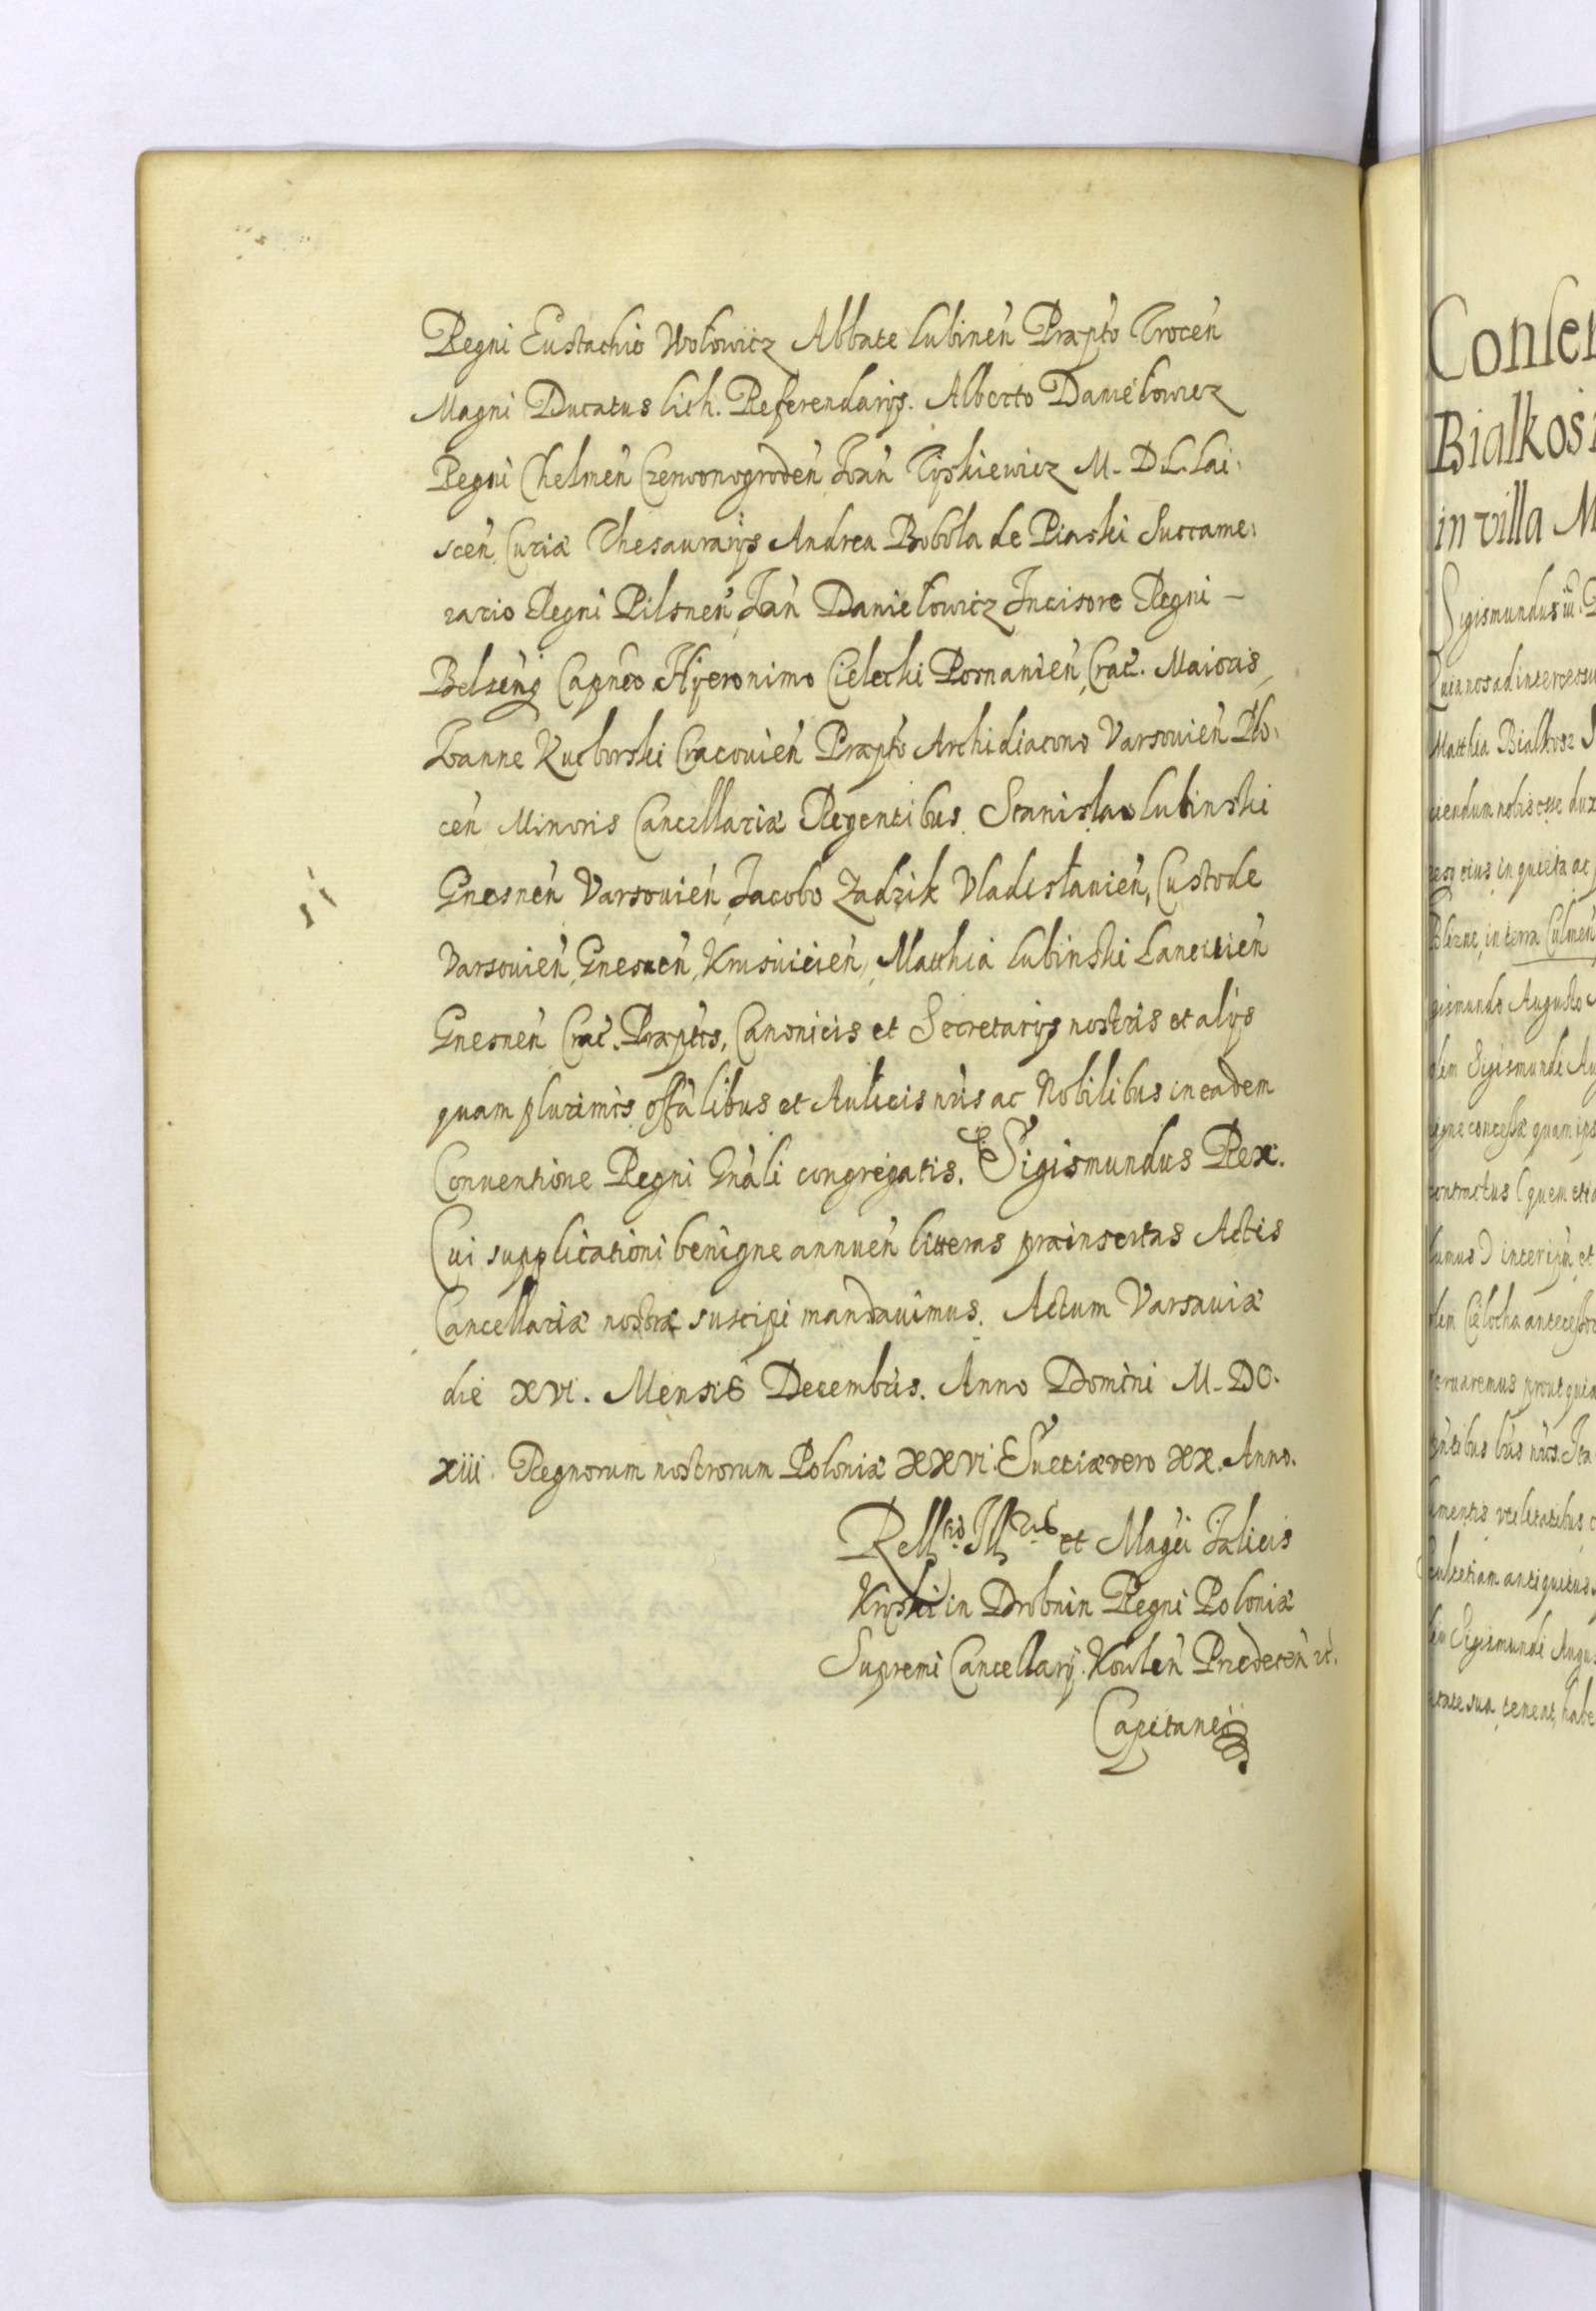 Regni Eustachio Wołowicz Abbate Lubinen̄ Præpto Trocen̄
Magni Ducatus Lith. Referendarijs. Alberto Daniełowicz
Regni Chelmen̄ Czerwonogroden̄ Joan̄ Tyszkiewicz M. D. L.
scen̄ Curiæ Thesaurarijs Andrea Bobola de Piaski Succame:
rario Regni Pilsnen̄ Jan̄ Daniełowicz Incisore Regni –
Belzen̄ Capneo Hyeronimo Cielecki Posnanien̄, Crac̄. Maioris,
Joanne Kućborski Cracouien̄ Præpto Archidiacono Varsouien̄ Plo:
cen̄ Minoris Cancellariæ Regentibus Stanislao Lubinski
Gnesnen̄ Varsouien̄, Jacobo Zadzik Vladislauien̄, Custode
Varsouien̄, Gnesnen̄, Krusuicien̄, Matthia Lubinski Lancicien̄
Gnesnen̄ Crac̄. Præptis, Canonicis et Secretarijs nostris et alijs
quam plurimis offālibus et Aulicis nr̄is ac Nobilibus in eadem
Conuentione Regni Gnāli congregatis. Sigismundus Rex.
Cui supplicationi benigne annuen̄ litteras præinsertas Actis
Cancellariæ nostræ suscipi mandauimus. Actum Varsauiæ
die XVI. Mensis Decembris. Anno Domini M. DC.
XIII. Regnorum nostrorum Poloniæ XXVI. Suetiæ vero XX. Anno.
et Magci Felicis
Kryski in Drobnin Regni Poloniæ
Supremi Cancellarij. Kowlen̄ Przedecen̄ etc.
Capitanei
Bialkos
in villa M
Sigismundus iii. D
Matthia Bialkosz
in terra Culmen̄
gismundo Augusto
Sigismundi Au
igne concessæ quam ips
contractus (quem etia
lumus) interim et
antecessor
Sigismundi Augus
tate sua teneat, habe